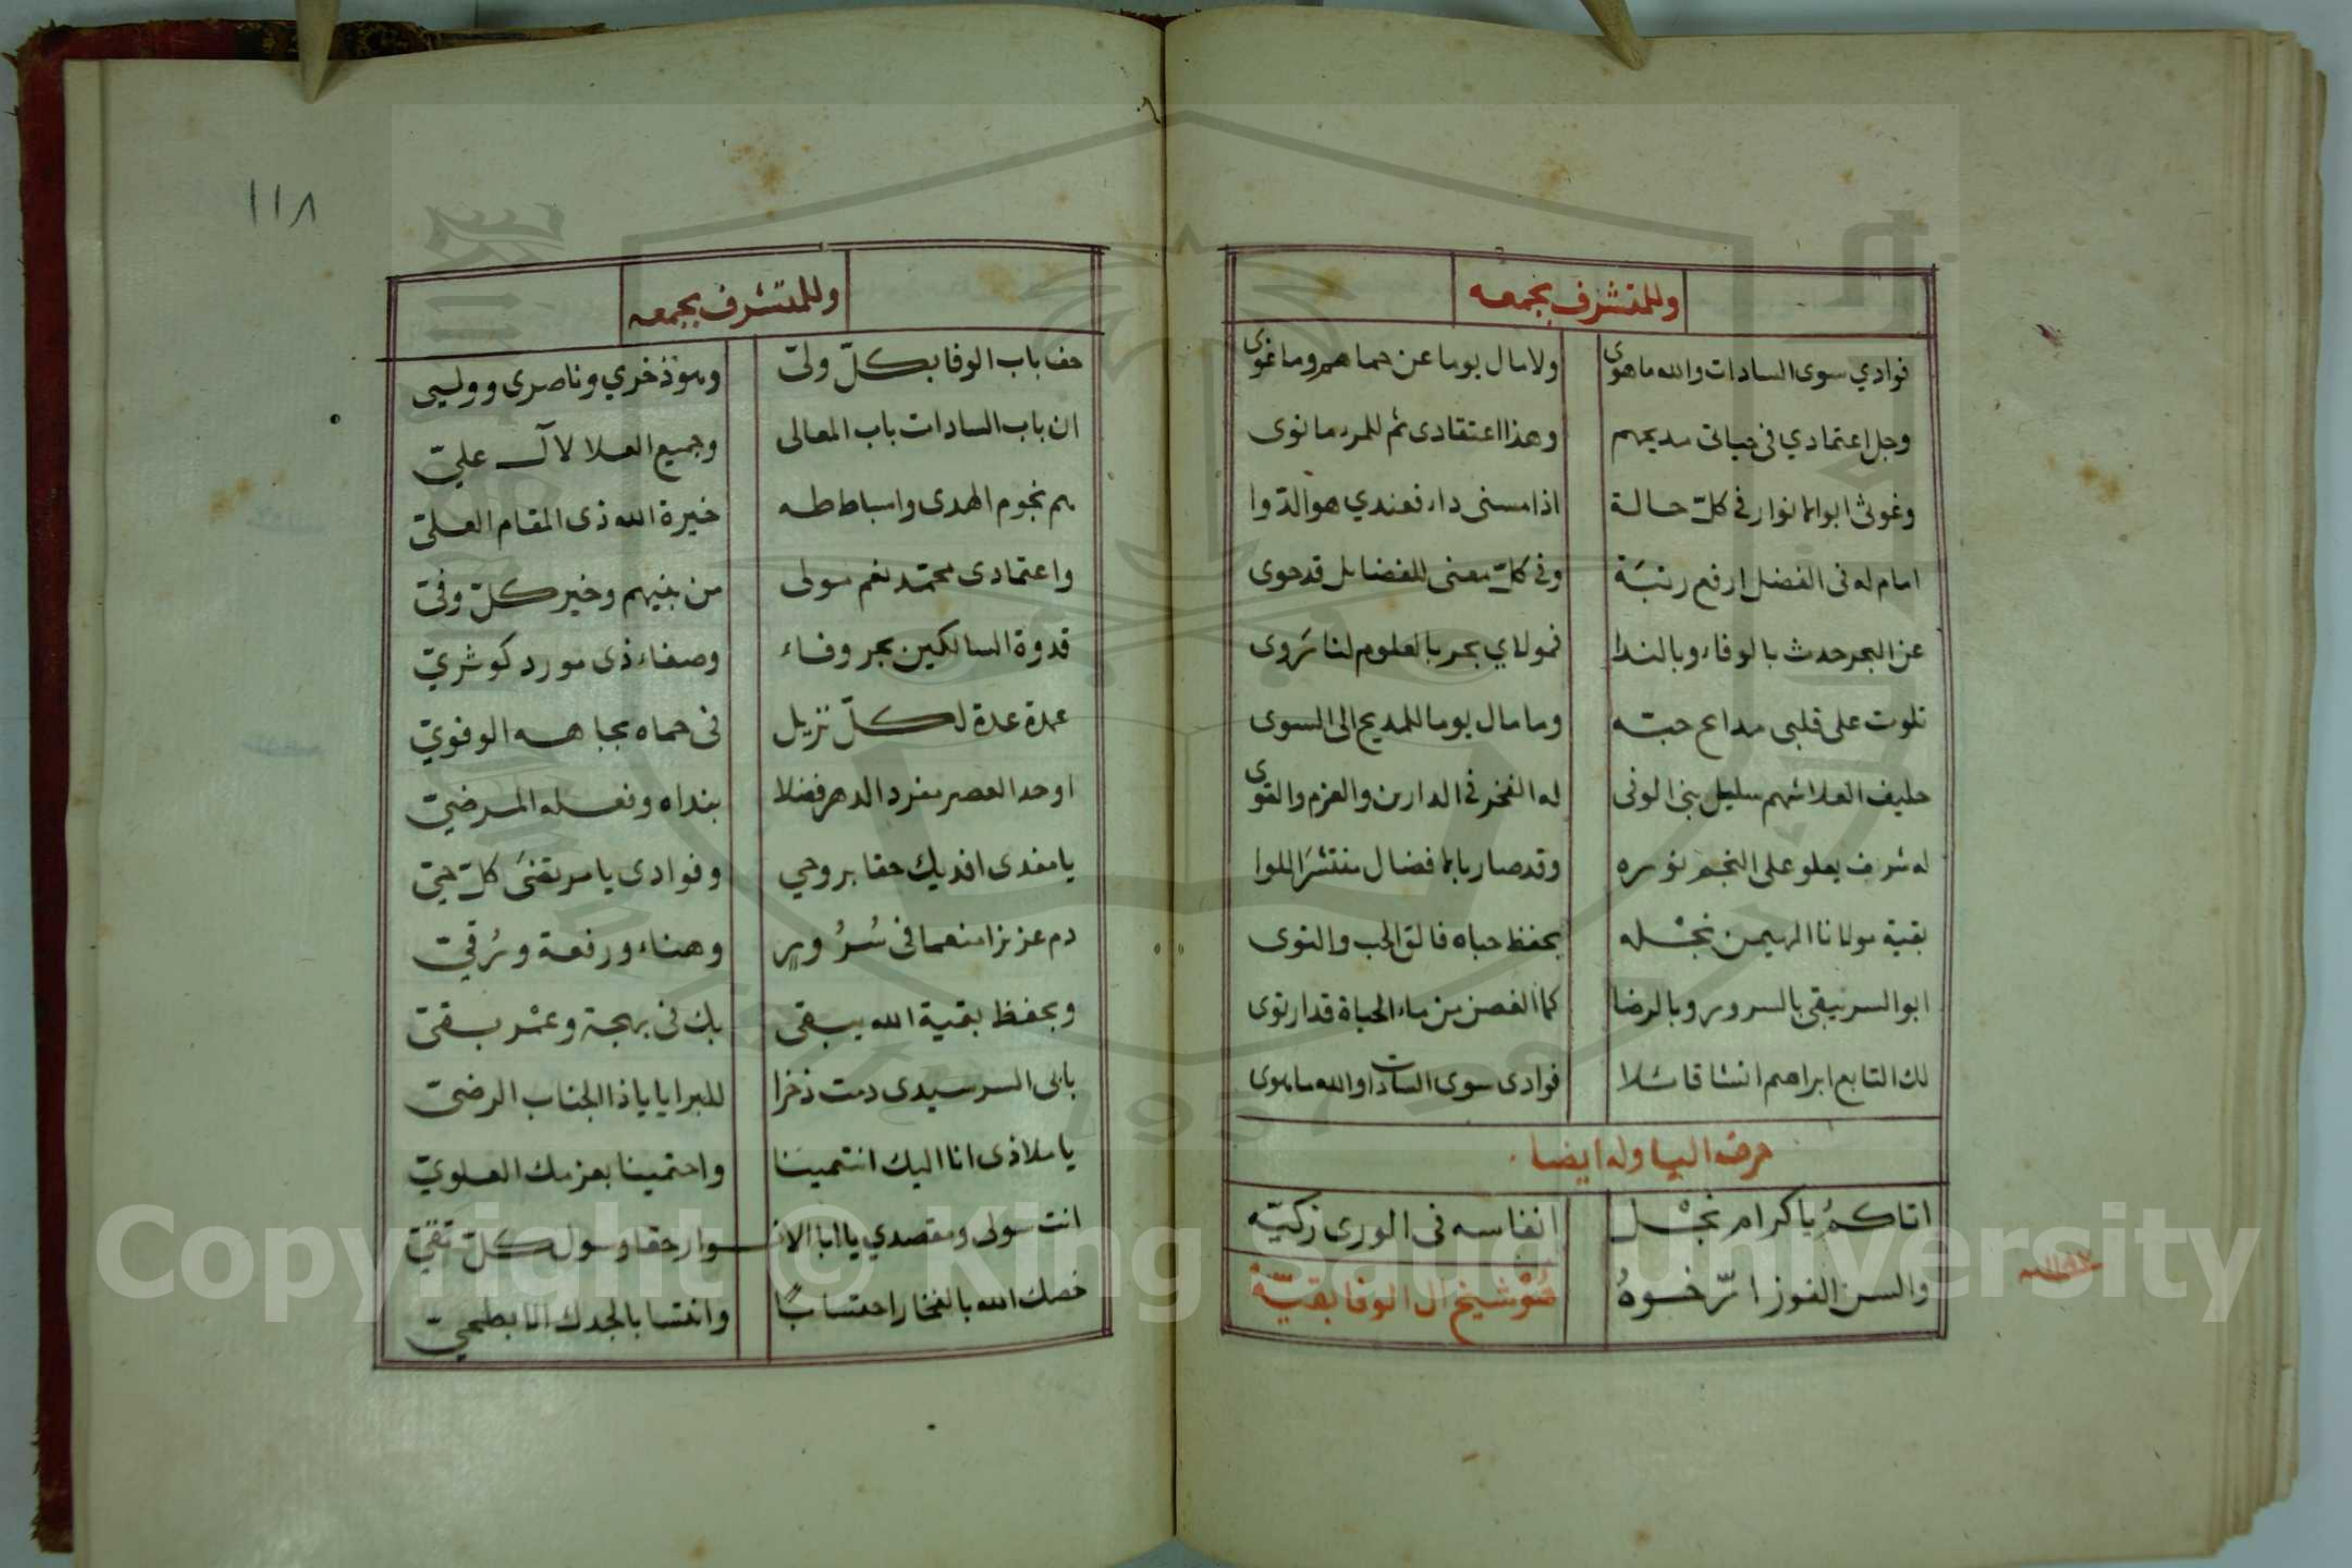 وللمتشرف بجمعه
فوادي سوى السادات والله ما هوى ولا مال يوما عن حماهم وما غوى
وجل اعتمادي فى حياتى مديحهم وهذا اعتقادى ثم للمرء ما نوى
وغوثى ابو الانوار فى كلّ حالة اذا مسنى داء فعندي هو الدّوا
امام له فى الفضل ارفع رتبَة وفى كلّ معنى للفضايل قد حوى
عن البحر حدث بالوفاء وبالندا فمولاي بحر بالعلوم لنا رَوى
تلوت على قلبى مدايح حبّه وما مال يوما للمديح الى السوى
حليف العلا شهم سليل بنى الوفى له الفخر فى الدارين والعزم والقوى
له شرف يعلو على النجم نوره وقد صار بالافضال منتشرَ اللوا
بقية مولانا المهيمن نجْله بحفظ حباه فالق الحب والنوى
ابو السر يبقى بالسرور وبالرضا كما الغصن من ماء الحياة قد ارتوى
لك التابع ابراهيم انشا قائلا فوادى سوى السادات والله ما هوى
حرف اليا وله ايضا
اتاكمُ يا كرام نجْل انفاسه فى الورى زكيّه
والسن الفوز ارّخوهُ شيخ ال الوفا بقيّة
١١٨
وللمتشرف بجمعه
حف باب الوفا بكلّ ولىّ وهو ذخري وناصرى ووليى
ان باب السادات باب المعالى وجميع العلا لآل علىّ
هم نجوم الهدى واسباط طه خيرة الله ذى المقام العلىّ
واعتمادى محمّد نعم مولى من بنيهم وخير كلّ وفىّ
قدوة السالكين بحر وفاء وصفاء ذى مورد كوثريّ
عمدة عدة لكلّ نزيل فى حماه بجاهه الوفويّ
اوحد العصر مفرد الدهر فضلا بنداه وفعله المرضيّ
يا مفدى افديك حقا بروحي وفوادى يا مرتقىَ كلّ حىّ
دم عزيزا منعما فى سُرُور وهناء ورفعة ورُقيّ
وبحفظ بقية الله يبقى بك فى بهجة وعمْر بقىّ
بابى السر سيدى دمت ذخرا للبرايا يا ذا الجناب الرضىّ
يا ملاذى انا اليك انتمينا واحتمينا بعزمك العلويّ
انت سولى ومقصدي يا ابا الانوار حقا وسول كلّ تقىّ
خصك الله بالفخار احتسابًا وانتسابا لجدك الابطحيّ
Copyright © King Saud University
1957